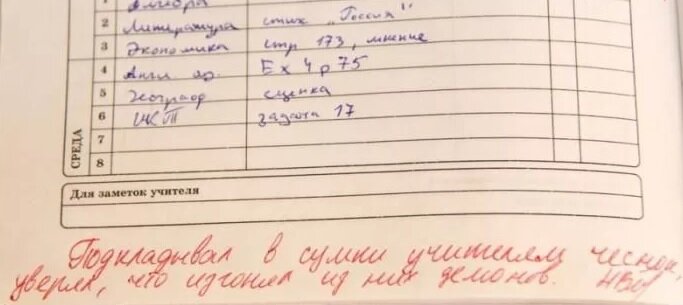 1 Алгебра
2 Литература стих "Россия"
3 Экономика стр 173, мнение
4 Англ. яз. Ex 4 p 75
5 Географ сценка
6 ИКТ задача 17
7
8
СРЕДА
Для заметок учителя
Подкладывал в сумки учителям чеснок,
уверял, что изгонял из них демонов.